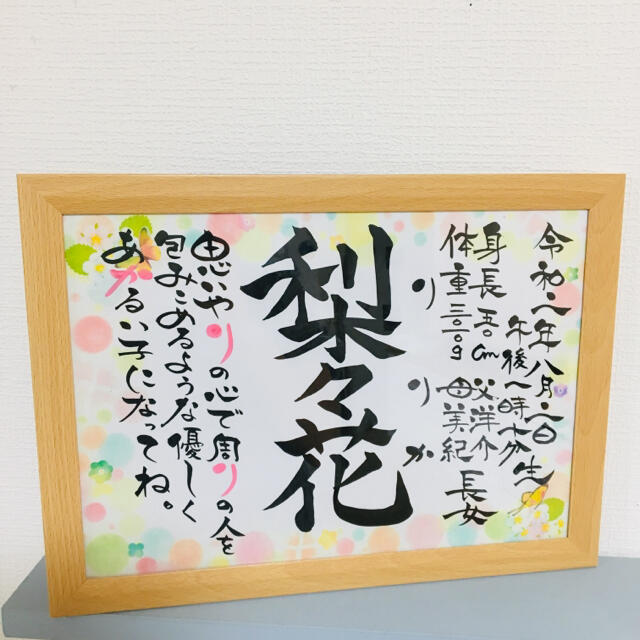 令和二年八月二日
午後一時十分生
身長 五〇cm 父洋介
体重三二〇〇g 母美紀 長女
りりか
梨々花
思いやりの心で周りの人を
包みこめるような優しく
あかるい子になってね。